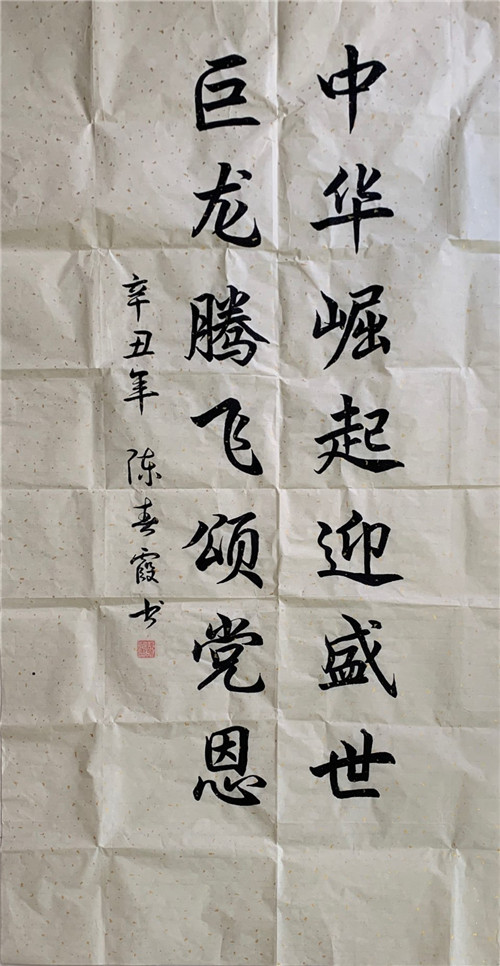 中华崛起迎盛世
巨龙腾飞颂党恩
辛丑年 陈春霞书